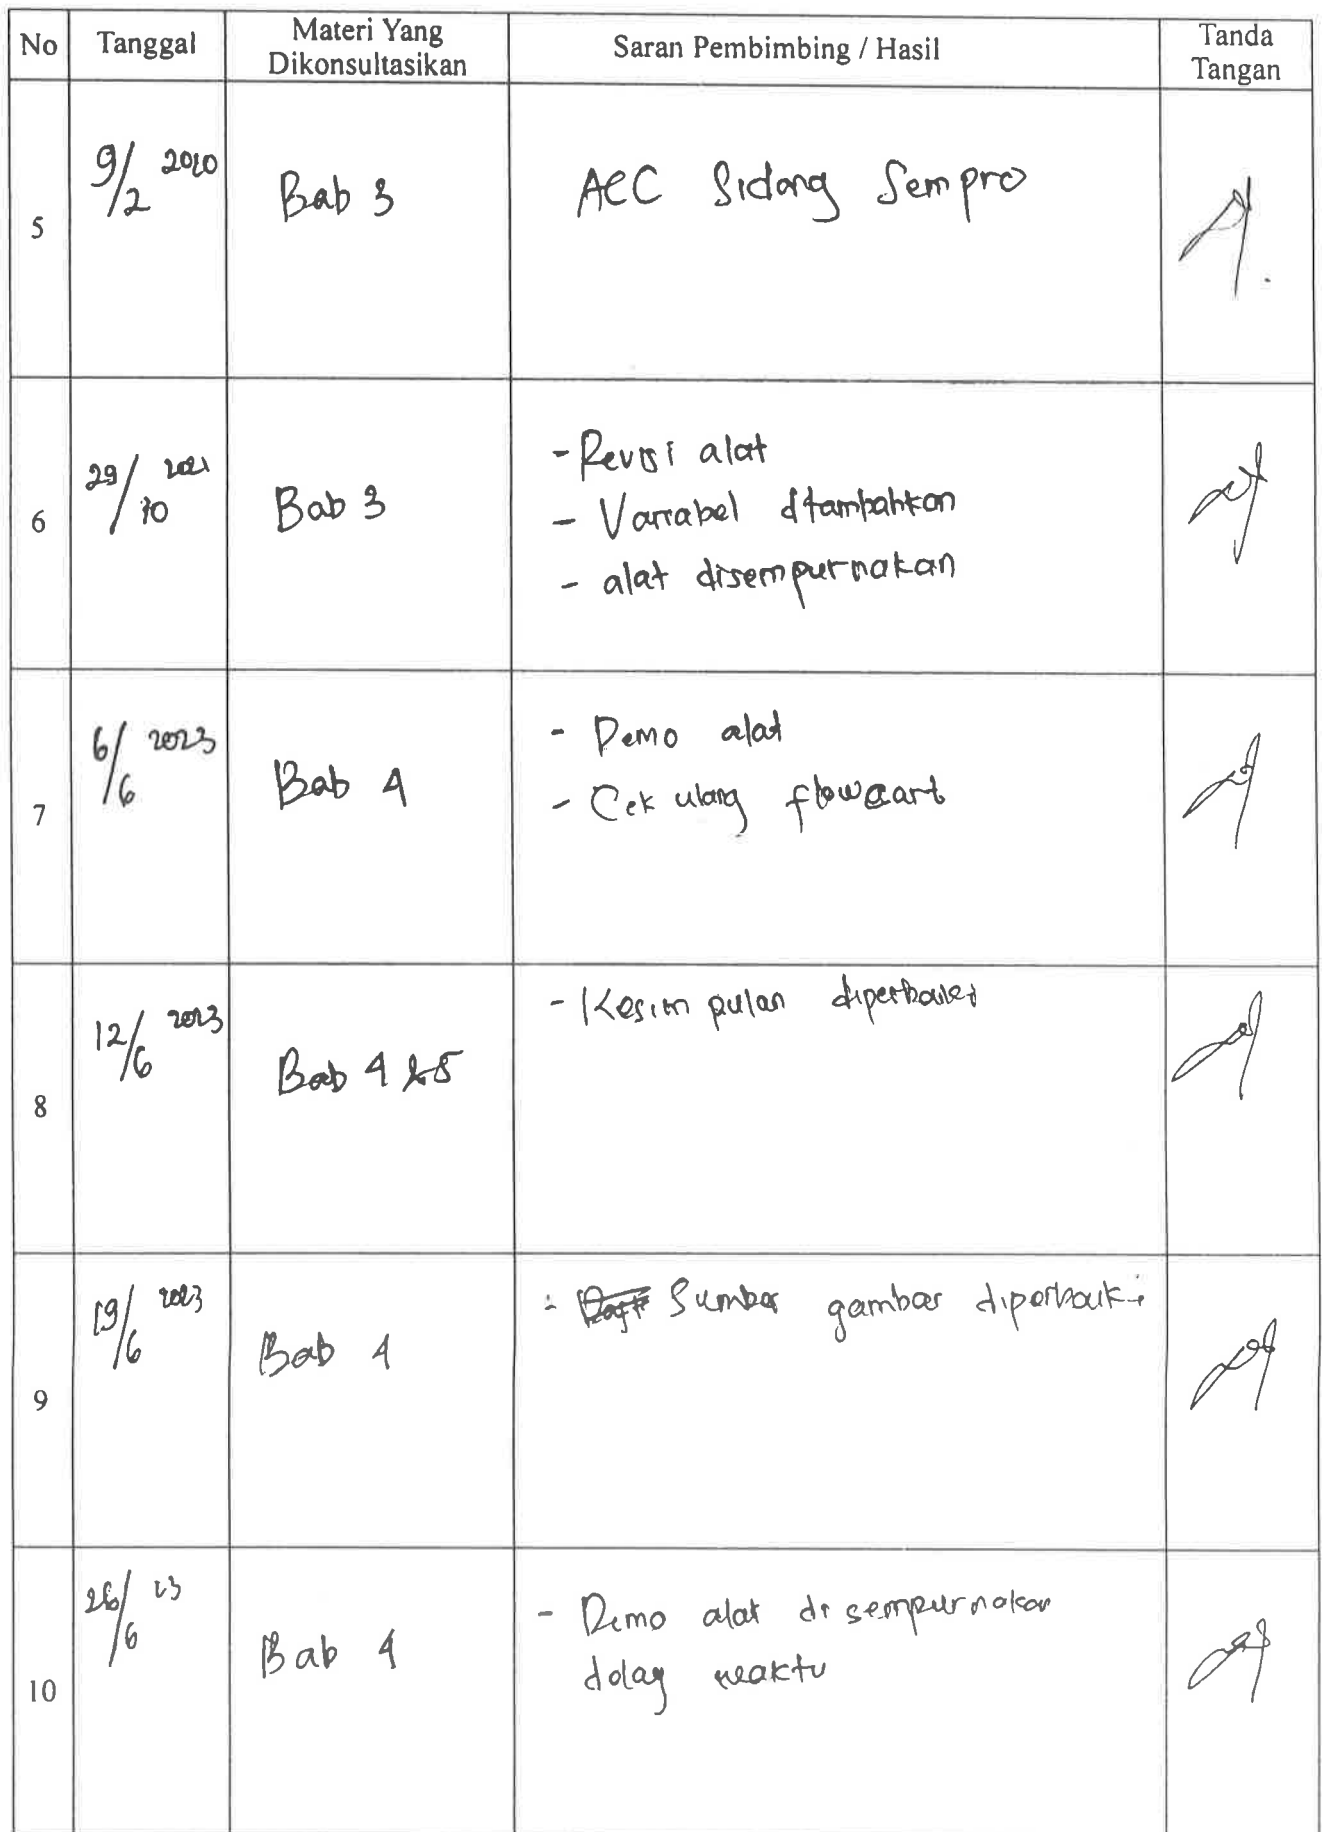 No Tanggal Materi Yang Dikonsultasikan Saran Pembimbing / Hasil Tanda Tangan
5 9/2 2020 Bab 3 ACC Sidang Sempro
6 29/10 2021 Bab 3 - Revisi alat
- Variabel ditambahkan
- alat disempurnakan
7 6/6 2023 Bab 4 - Demo alat
- Cek ulang flowcart
8 12/6 2023 Bab 4 & 5 - Kesimpulan diperbaiki
9 19/6 2023 Bab 4 - Sumber gambar diperbaiki
10 26/6 23 Bab 4 - Demo alat disempurnakan
delay waktu